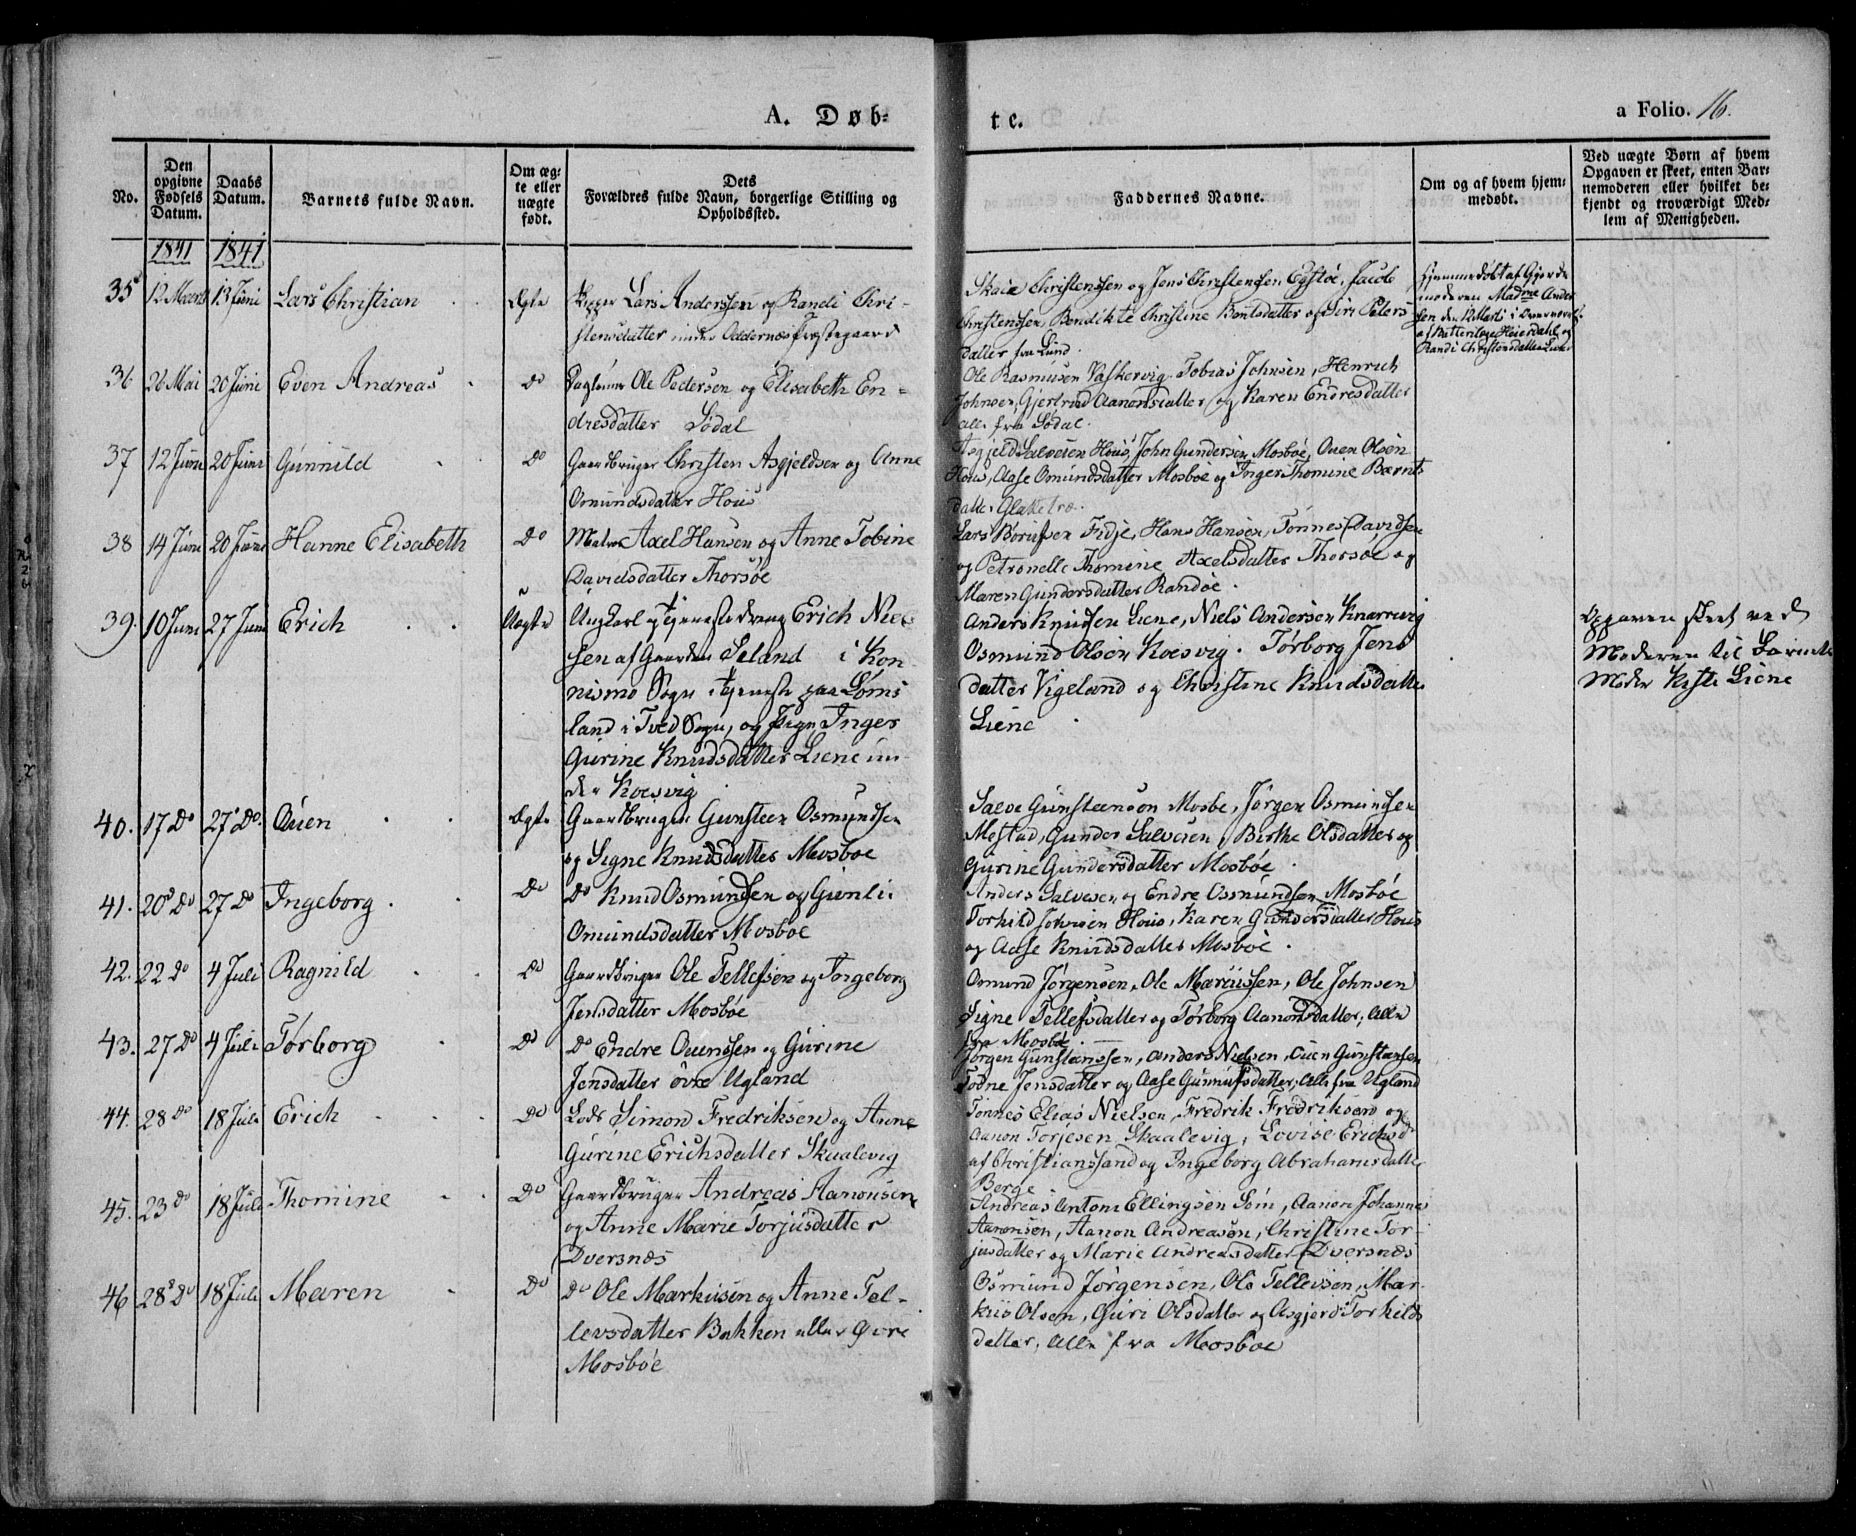 A. Døb-
te.
a Folio. 16.
No.
Den opgivne Fødsels Datum.
Daabs Datum.
Barnets fulde Navn.
Om ægte eller uægte født.
Dets Forældres fulde Navn, borgerlige Stilling og Opholdssted.
Faddernes Navne.
Om og af hvem hjemmedøbt.
Ved uægte Børn af hvem Opgaven er skeet, enten Barnemoderen eller hvilket bekjendt og troværdigt Medlem af Menigheden.
1841 1841
35 12 Marts 13 Juni Lars Christian Ægte
Lars Anderssen og Randi Chri-
stensdatter under Oddernes Præstegaard
Christenssen og Jens Christenssen Egstøe, Jacob
Christenssen, Bendikte Christine Bentsdatter og Siri Peters
datter fra Lund.
Hjemmedøbt af Gjorde
moderen Madme Ander
sen den 12 Marts i
Randi Christensdatter
36 26 Mai 20 Juni Even Andreas Do
Ole Pedersen og Elisabeth En-
dresdatter Sødal
Ole Rasmusen Vaskervig, Tobias Johnsen, Henrich
Johnsen, Gjertrud Aanonsdatter og Karen Endresdatter
alle fra Sødal.
37 12 Juni 20 Juni Gunnild Do
Gaardbruger Christen Asgjeldsen og Anne
Omundsdatter Hous
Asgjeld Salvesen Hous, John Gundersen Mosbøe, Ouen Olsen
Hous, Aase Omundsdatter Mosbøe og Inger Thomine Bærnts
datter
38 14 Juni 20 Juni Hanne Elisabeth Do
Matros Axel Hansen og Anne Tobine
Davidsdatter Thorsøe
Lars Fidje, Hans Hansen, Tønnes Davidsen
og Petronelle Thomine Axelsdatter Thorsøe og
Maren Gundersdatter Randøe.
39. 10 Juni 27 Juni Erich Uægte
Ungkarl og Tjenestedreng Erich Niel-
sen af Gaarden Seland i Kon-
nismo Sogn i tjeneste paa Løms
land i Tved Sogn, og Pige Inger
Gurine Knudsdatter Liene un-
der Koesvig
Anders Knudsen Liene, Niels Andersen Knarrevig
Osmund Olsen Koesvig. Tørborg Jens
datter Vigeland og Christine Knudsdatter
Liene
Opgaven skeet ved
Moderen til Barnets
Moder Liene
40. 17 Do 27 Do. Ouen Ægte
Gaardbruger Gunsteen Osmundsen
og Signe Knudsdatter Mosbøe
Salve Gunsteenson Mosbø, Jørgen Osmundsen
Mestad, Gunder Salvesen, Birthe Olsdatter og
Gurine Gundersdatter Mosbøe.
41. 20 Do 27 Do Ingeborg Do
Do Knud Osmundsen og Gunli
Omundsdatter Mosbøe
Anders Salvesen og Endre Osmundsen Mosbøe
Torkild Johnsen Hous, Karen Gundersdatter Hous
og Aase Knudsdatter Mosbøe.
42. 22 Do 4 Juli Ragnild Do
Gaardbruger Ole Tellefsen og Ingeborg
Jensdatter Mosbøe
Osmund Jørgensen, Ole Marcussen, Ole Johnsen
Signe Tellefsdatter og Tørborg Aanonsdatter, Alle
fra Mosbø.
43. 27 Do 4 Juli Tørborg Do
Do Endre Ouenssen og Gurine
Jensdatter øvre Ugland
Jørgen Gunstenssen, Anders Nielsen, Ouen Gunstensen
Todne Jensdatter og Aase Gunnufsdatter, alle fra Ugland
44. 28 Do 18 Juli Erich Do
Lods Simon Fredriksen og Anne
Gurine Erichsdatter Skaalevig
Tønnes Elias Nielsen, Fredrik Fredriksen og
Aanon Torjesen Skaalevig, Lovise Erichsd
af Christianssand og Ingeborg Abrahamsdatter
Berge
45. 23 Do 18 Juli Thomine Do
Gaardbruger Andreas Aanonsen
og Anne Marie Torjusdatter
Dversnæs
Andreas Antom Ellingsen Søm, Aanon Johannes
Aanonsen, Aanon Andreasøn, Christine Tor
jusdatter og Marie Andreasdatter Dversnæs
46 28 Do 18 Juli Maren Do
Do Ole Markusen og Anne Tel-
levsdatter Bakken eller øvre
Mosbøe
Osmund Jørgensen, Ole Tellevsen, Mar-
kus Olsen, Guri Olsdatter og Asgjerd Torkilds
datter, alle fra Mosbøe